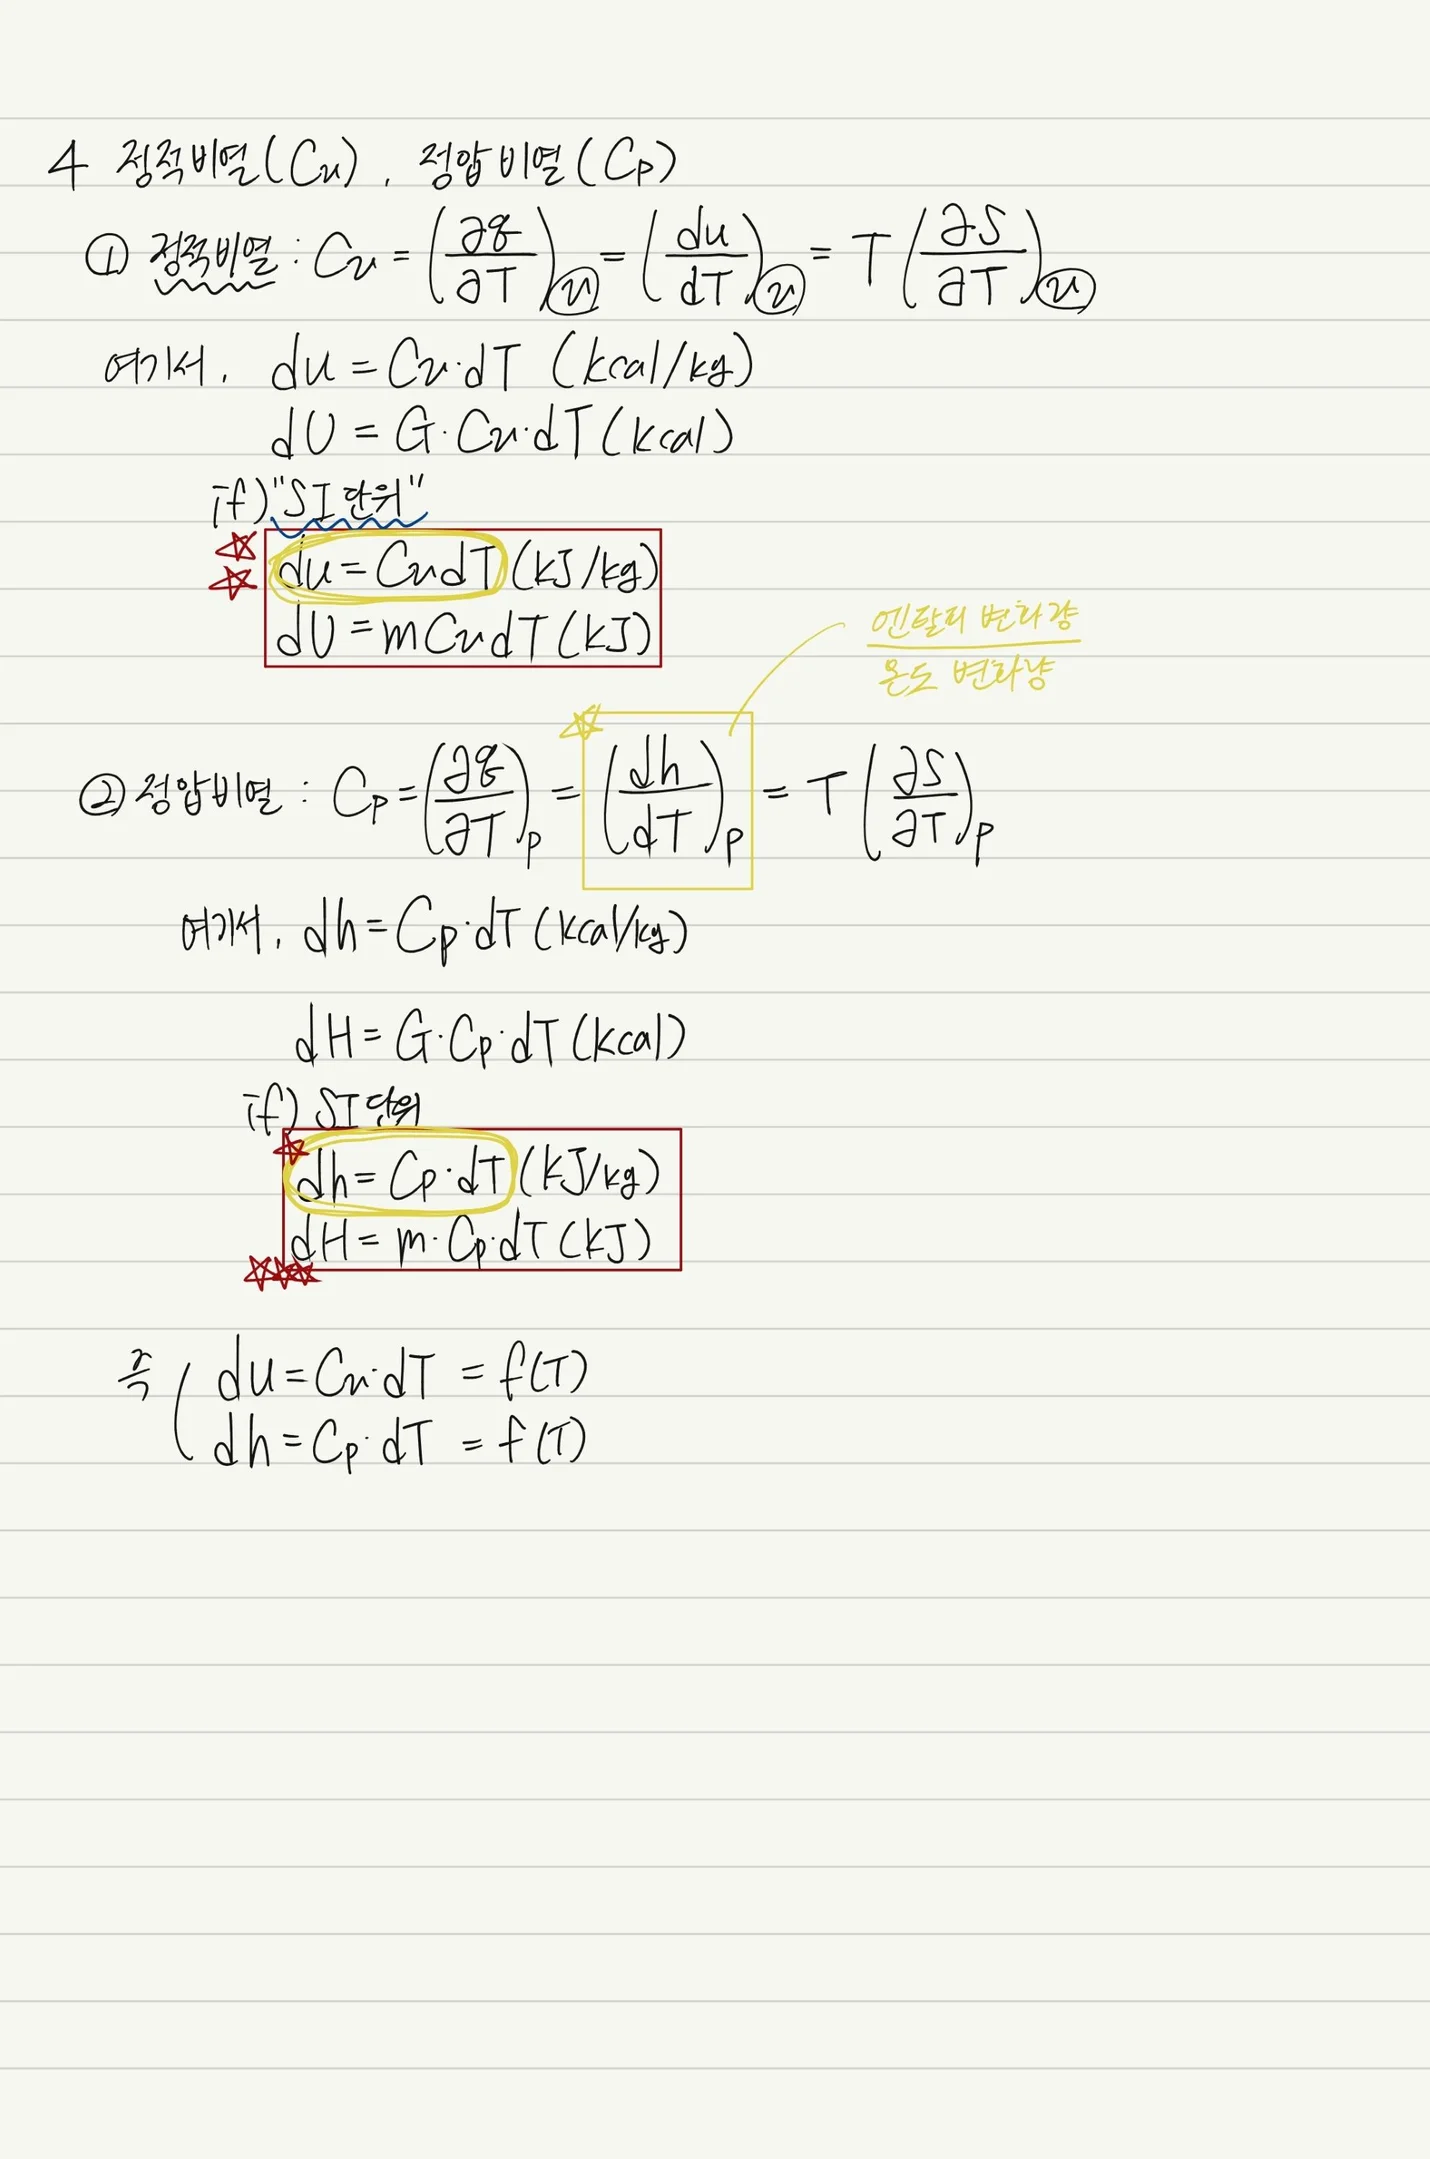 4 정적비열(Cv), 정압비열(Cp)
① 정적비열 : Cv = (∂q/∂T)v = (du/dT)v = T(∂S/∂T)v
여기서, du = Cv·dT (kcal/kg)
dU = G·Cv·dT (kcal)
if) "SI단위"
du = CvdT (kJ/kg)
dU = mCvdT (kJ)
엔탈피 변화량
온도 변화량
② 정압비열 : Cp = (∂q/∂T)p = (dh/dT)p = T(∂S/∂T)p
여기서, dh = Cp·dT (kcal/kg)
dH = G·Cp·dT (kcal)
if) SI단위
dh = Cp·dT (kJ/kg)
dH = m·Cp·dT (kJ)
즉 ( du = Cv·dT = f(T)
dh = Cp·dT = f(T)